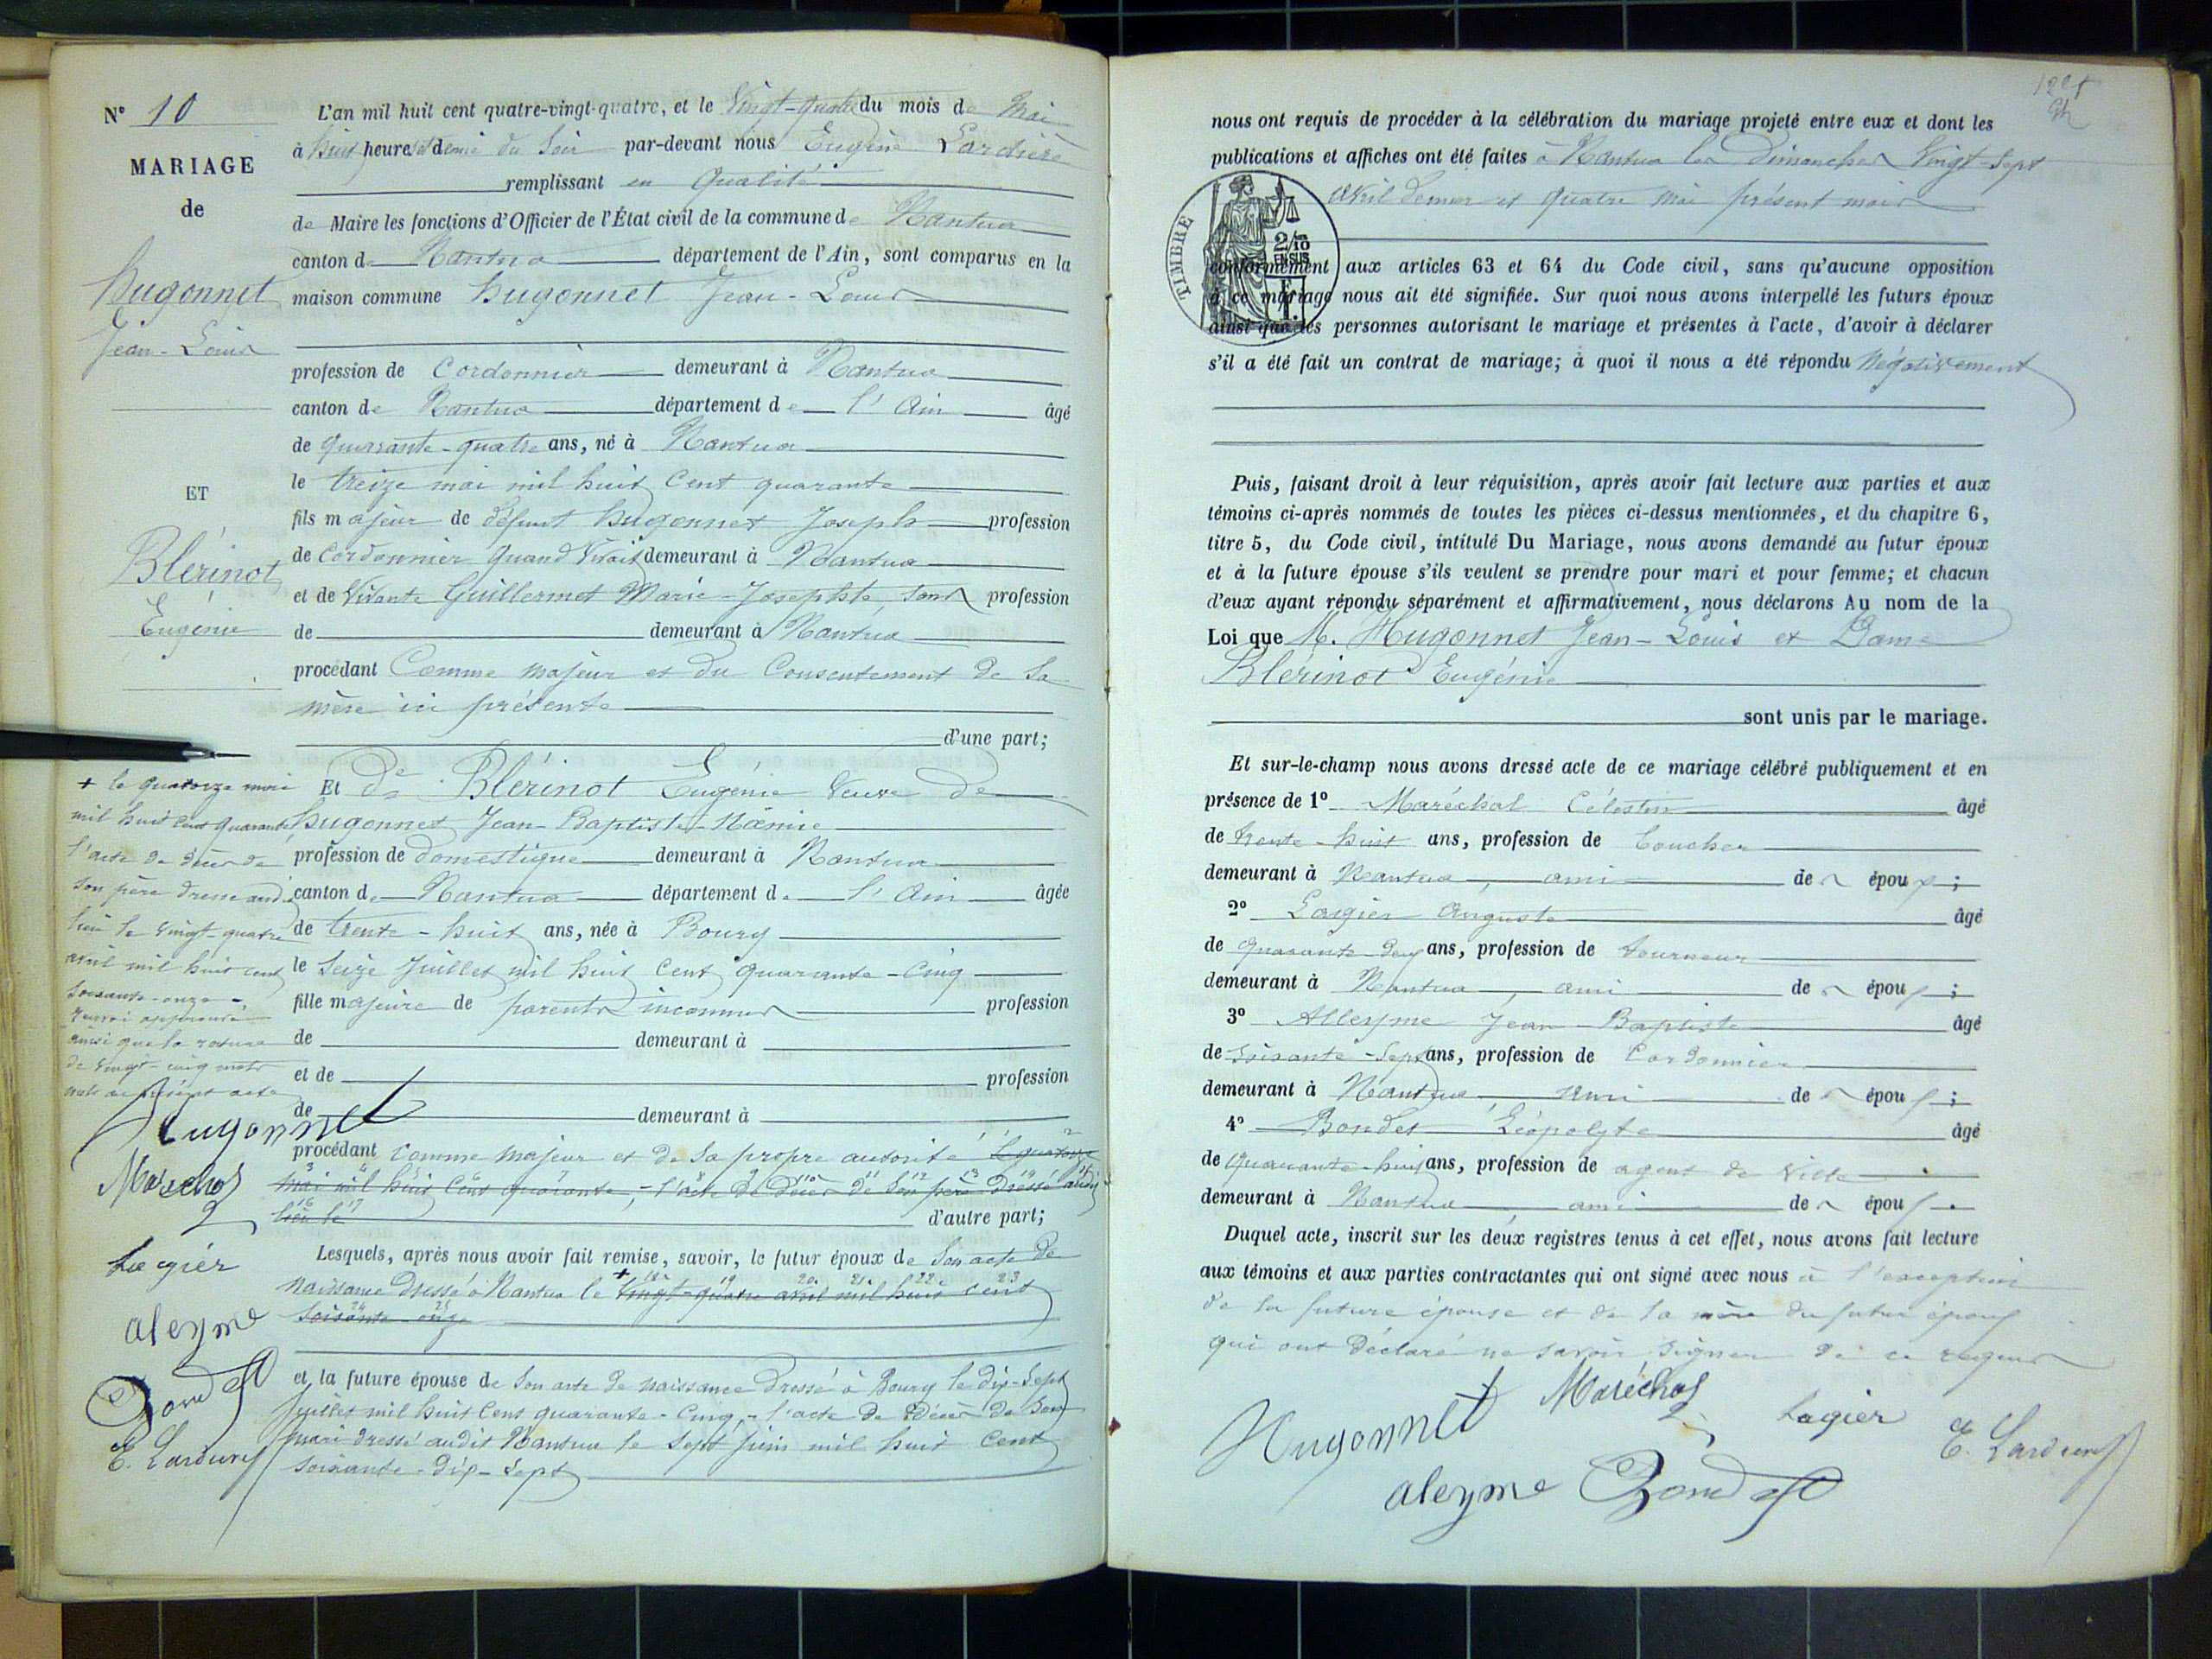 N° 10
MARIAGE
de
Hugonnet
Jean-Louis
ET
Blérinot
Eugénie
+ le quatorze mai
mil huit cent quarante
l'acte de décès de
son père dressé audit
lieu le vingt-quatre
avril mil huit cent
soixante-onze -
renvoi approuvé
ainsi que la rature
de vingt-cinq mots
nuls au présent acte
Hugonnet
Maréchal
Lagier
aleyme
Bondet
E. Lardière
L'an mil huit cent quatre-vingt-quatre, et le Vingt-quatre du mois de Mai
à huit heures et demie du Soir par-devant nous Eugène Lardière
remplissant en qualité
de Maire les fonctions d'Officier de l'État civil de la commune de Nantua
canton de Nantua département de l'Ain, sont comparus en la
maison commune Hugonnet Jean-Louis
profession de Cordonnier demeurant à Nantua
canton de Nantua département de l'Ain âgé
de quarante-quatre ans, né à Nantua
le treize mai mil huit cent quarante
fils majeur de défunt Hugonnet Joseph profession
de Cordonnier quand Vivait demeurant à Nantua
et de Vivante Guillermet Marie-Josephte, sans profession
de demeurant à Nantua
procédant Comme majeur et du Consentement de Sa
mère ici présente
d'une part;
Et De Blérinot Eugénie Veuve de
Hugonnet Jean-Baptiste
profession de domestique demeurant à Nantua
canton de Nantua département de l'Ain âgée
de trente-huit ans, née à Bourg
le Seize Juillet mil huit Cent quarante-Cinq
fille majeure de parents inconnus profession
de demeurant à
et de profession
de demeurant à
procédant Comme majeur et de Sa propre autorité le quatorze
mai mil huit cent quarante, - l'acte de décès de son père dressé audit
lieu le d'autre part;
Lesquels, après nous avoir fait remise, savoir, le futur époux de Son acte de
naissance dressé à Nantua le + vingt-quatre avril mil huit cent
soixante-onze
et la future épouse de Son acte de naissance dressé à Bourg le dix-Sept
Juillet mil huit Cent quarante-Cinq, - l'acte de Décès de Son
mari dressé audit Nantua le Sept juin mil huit Cent
soixante-dix-Sept
nous ont requis de procéder à la célébration du mariage projeté entre eux et dont les
publications et affiches ont été faites à Nantua les Dimanches Vingt-Sept
avril dernier et quatre mai présent mois
TIMBRE
2/10
EN SUS
conformément aux articles 63 et 64 du Code civil, sans qu'aucune opposition
à ce mariage nous ait été signifiée. Sur quoi nous avons interpellé les futurs époux
ainsi que les personnes autorisant le mariage et présentes à l'acte, d'avoir à déclarer
s'il a été fait un contrat de mariage; à quoi il nous a été répondu Négativement
Puis, faisant droit à leur réquisition, après avoir fait lecture aux parties et aux
témoins ci-après nommés de toutes les pièces ci-dessus mentionnées, et du chapitre 6,
titre 5, du Code civil, intitulé Du Mariage, nous avons demandé au futur époux
et à la future épouse s'ils veulent se prendre pour mari et pour femme; et chacun
d'eux ayant répondu séparément et affirmativement, nous déclarons Au nom de la
Loi que M. Hugonnet Jean-Louis et Dame
Blérinot Eugénie
sont unis par le mariage.
Et sur-le-champ nous avons dressé acte de ce mariage célébré publiquement et en
présence de 1° Maréchal Célestin âgé
de trente-huit ans, profession de boucher
demeurant à Nantua, ami des époux;
2° Lagier Auguste âgé
de quarante-deux ans, profession de tourneur
demeurant à Nantua, ami des époux;
3° Alleyme Jean-Baptiste âgé
de soixante-sept ans, profession de Cordonnier
demeurant à Nantua, ami des époux;
4° Bondet Léopolyte âgé
de quarante-huit ans, profession de agent de Ville
demeurant à Nantua, ami des époux.
Duquel acte, inscrit sur les deux registres tenus à cet effet, nous avons fait lecture
aux témoins et aux parties contractantes qui ont signé avec nous à l'exception
de la future épouse et de la mère du futur époux
qui ont déclaré ne savoir signer de ce requis
Hugonnet
Maréchal
Lagier
E. Lardière
aleyme
Bondet